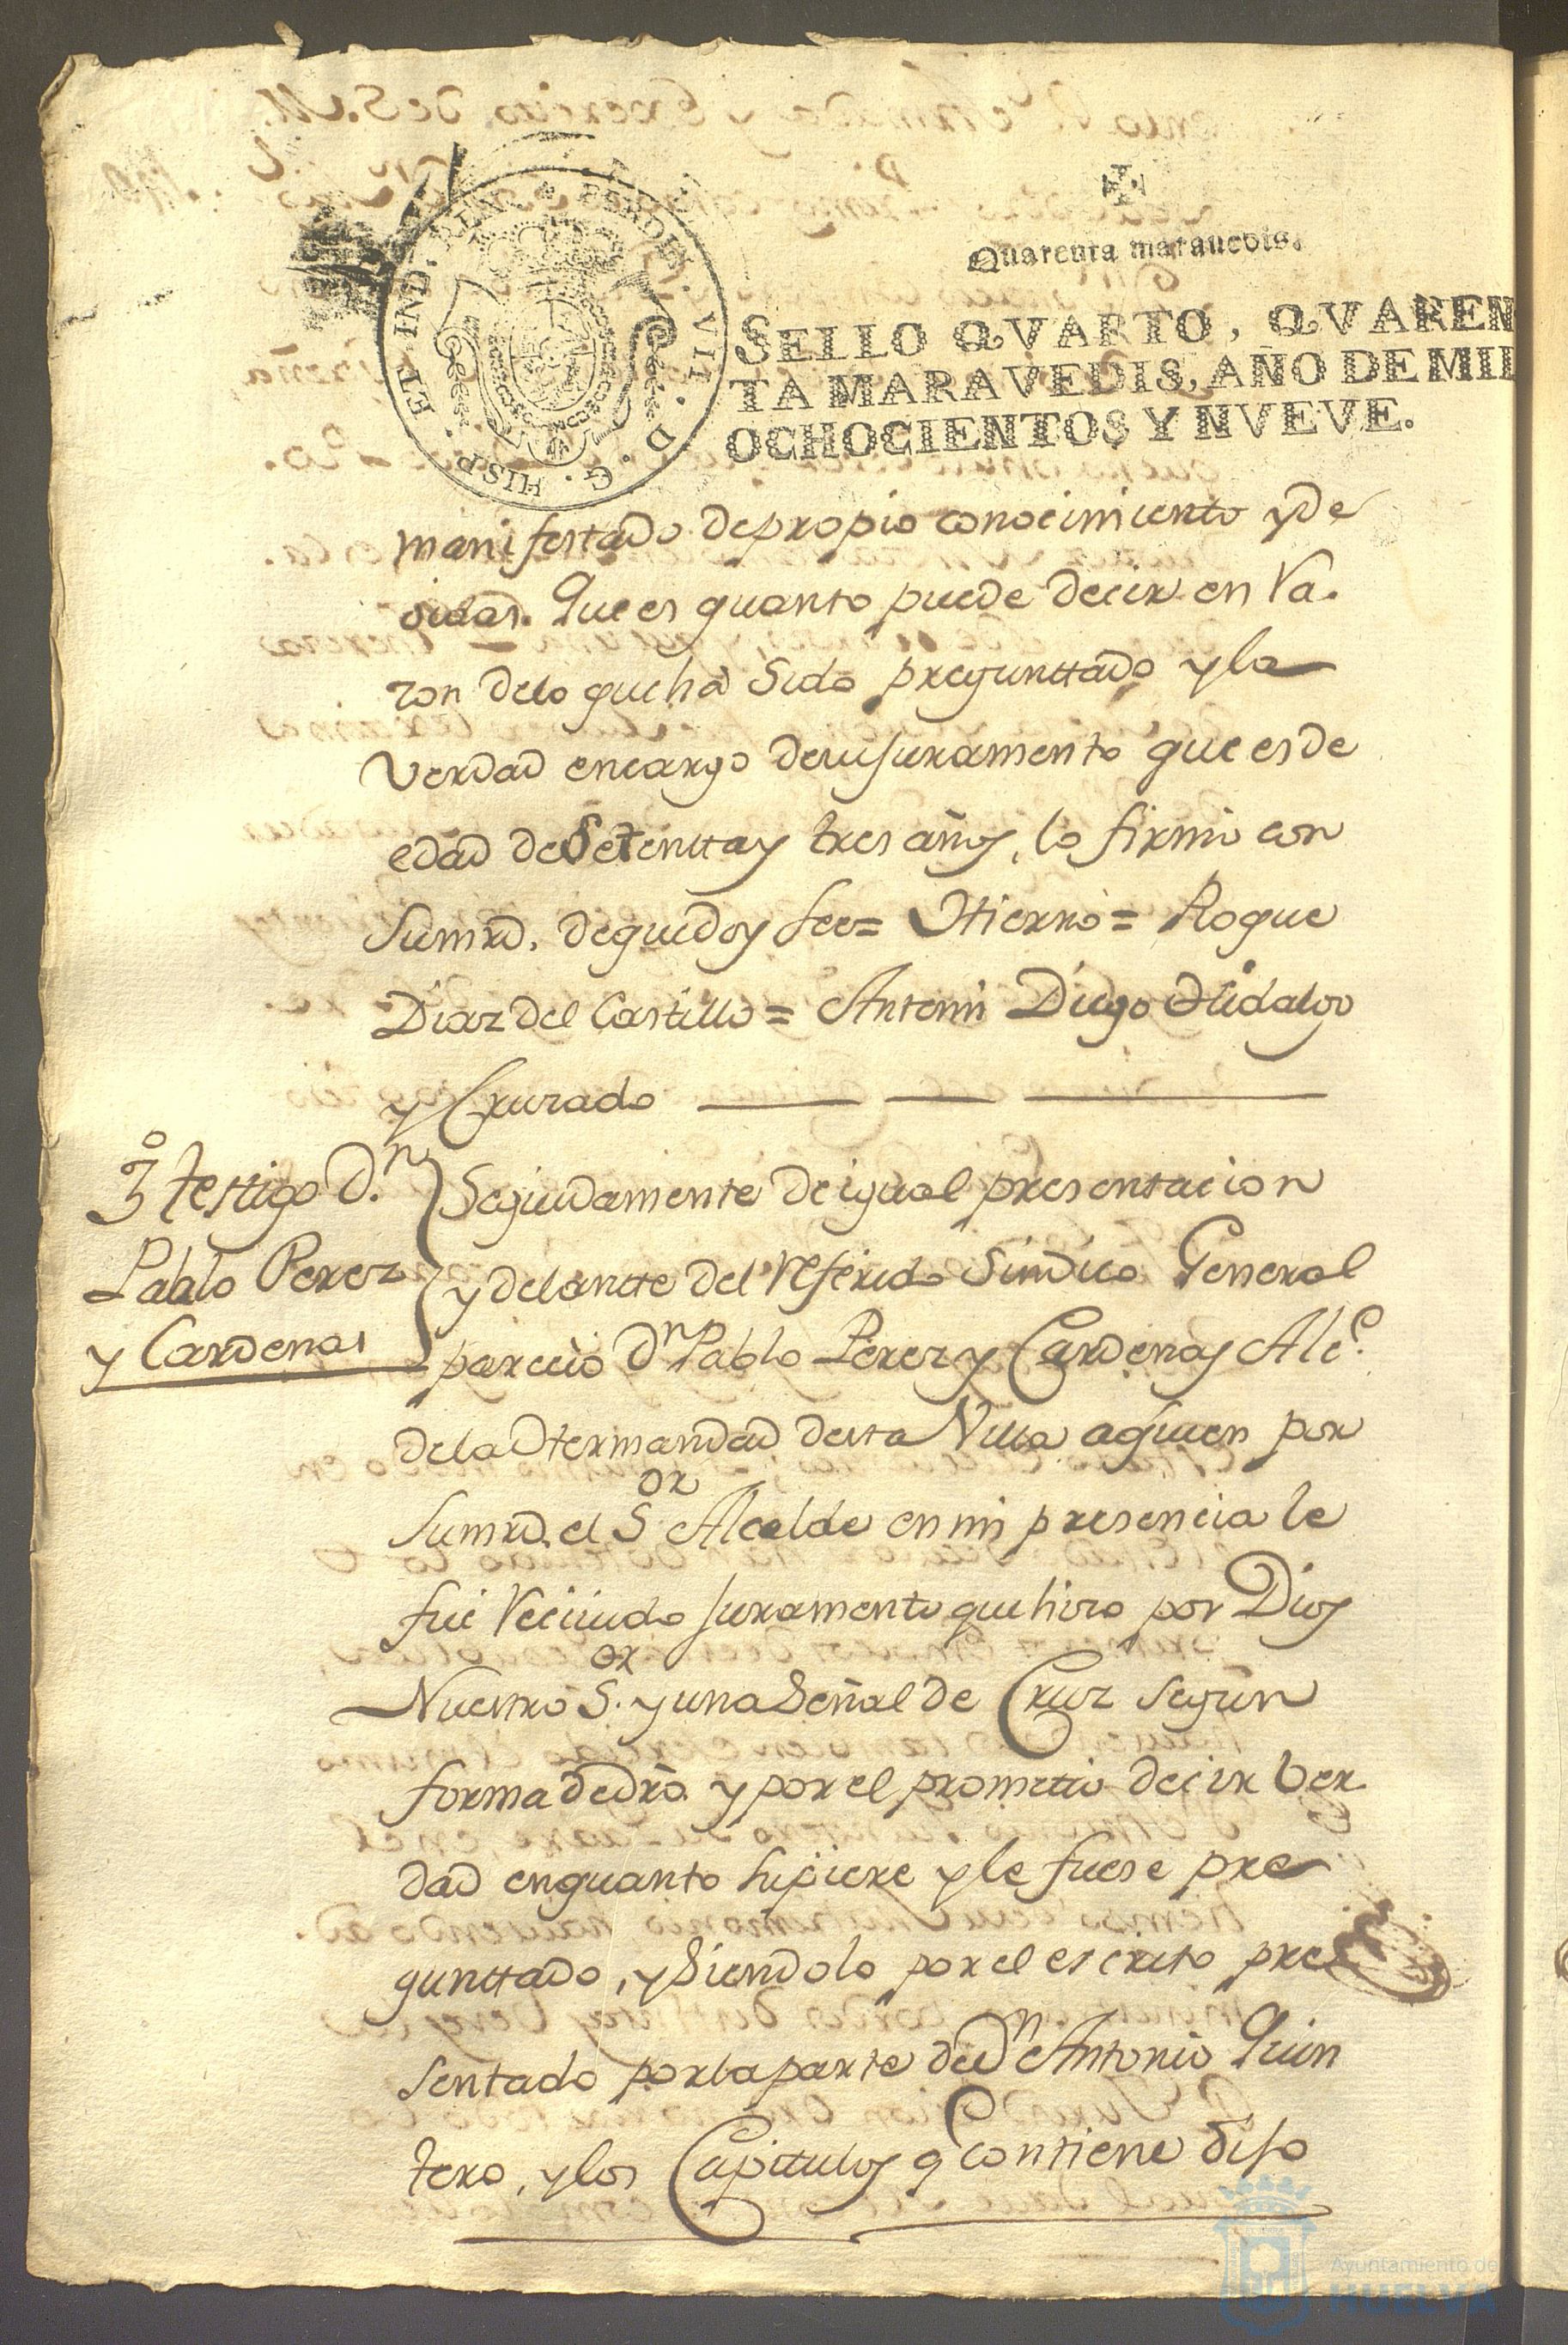 Quarenta marauedis.
SELLO QVARTO, QVAREN
TA MARAVEDIS, AÑO DE MIL
OCHOCIENTOS Y NVEVE.
FERDIN. VII. D. G. HISP. ET IND.
manifestado de propio conocimiento y de
oidas. Que es quanto puede decir en Ra.
zon de lo que ha Sido preguntado y la
Verdad en cargo de su juramento que es de
edad de Setentta y tres años, lo firmó con
Sumrd. de que doy fee = Hierro = Roque
Diaz del Castillo = Antemi Diego Hidalgo
y Cruzado
3º testigo Dn.
Pablo Perez
y Cardenas
Seguidamente de igual presentacion
y delantte del referido Sindico General
parecio Dn Pablo Perez y Cardenas Alce.
de la Hermandad desta Villa a quien por
Sumrd. el Sor Alcalde en mi presencia le
fue Recivido juramento que hizo por Dios
Nuestro Sor. y una Señal de Cruz segun
forma de dro. y por el prometio decir ber
dad en quanto supiere y le fuese pre
gunttado, y Siendolo por el escrito pre
sentado por la parte de Dn Antonio Quin
tero, y los Capitulos q contiene dijo
Ayuntamiento de
HUELVA